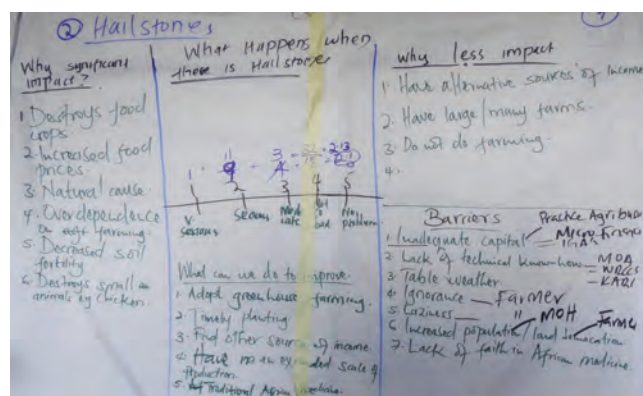 ② Hailstones
Why significant
impact?
1 Destroys food
crops
2. Increased food
prices.
3. Natural cause
4. Overdependence
on farming.
5. Decreased soil
fertility
6. Destroys small
animals eg Chicken.
What Happens when
there is Hailstones
1 2 3 4 5
V. serious
Serious
Moderate
Not so bad
No problem
What can we do to improve.
1. Adopt greenhouse farming.
2. Timely planting
3. Find other source of income
4. Have an expanded scale of
Production.
5. Traditional African medicine.
why less impact
1. Have alternative sources of Income
2. Have large/many farms.
3. Do not do farming.
4.
Barriers
Practice Agribus
1. Inadequate capital Micro-finance
2 Lack of technical know-how MOA
3. Table weather
KARI
4. Ignorance Farmer
5. Laziness "
6 Increased population/land MOH Farmer
7. Lack of faith in African medicine.